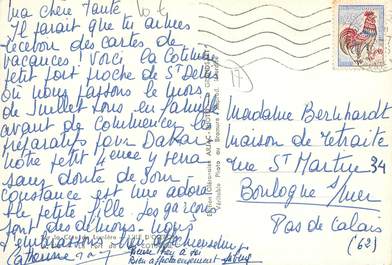 Ma chère tante
Il parait que tu aimes
recevoir des cartes de
vacances! Voici la Cotinière
petit port proche de St Denis
où nous passons le mois
de Juillet tous en famille
avant de commencer les
préparatifs pour Dakar
notre petit y sera
sans doute de son
Constance est une adora
ble petite fille. Les garçons
sont des démons. nous
t'embrassons très affectueusement
Catherine
bien affectueusement
Madame Bernhardt
Maison de retraite
rue St Martin 34
Boulogne s/mer
Pas de Calais
(62)